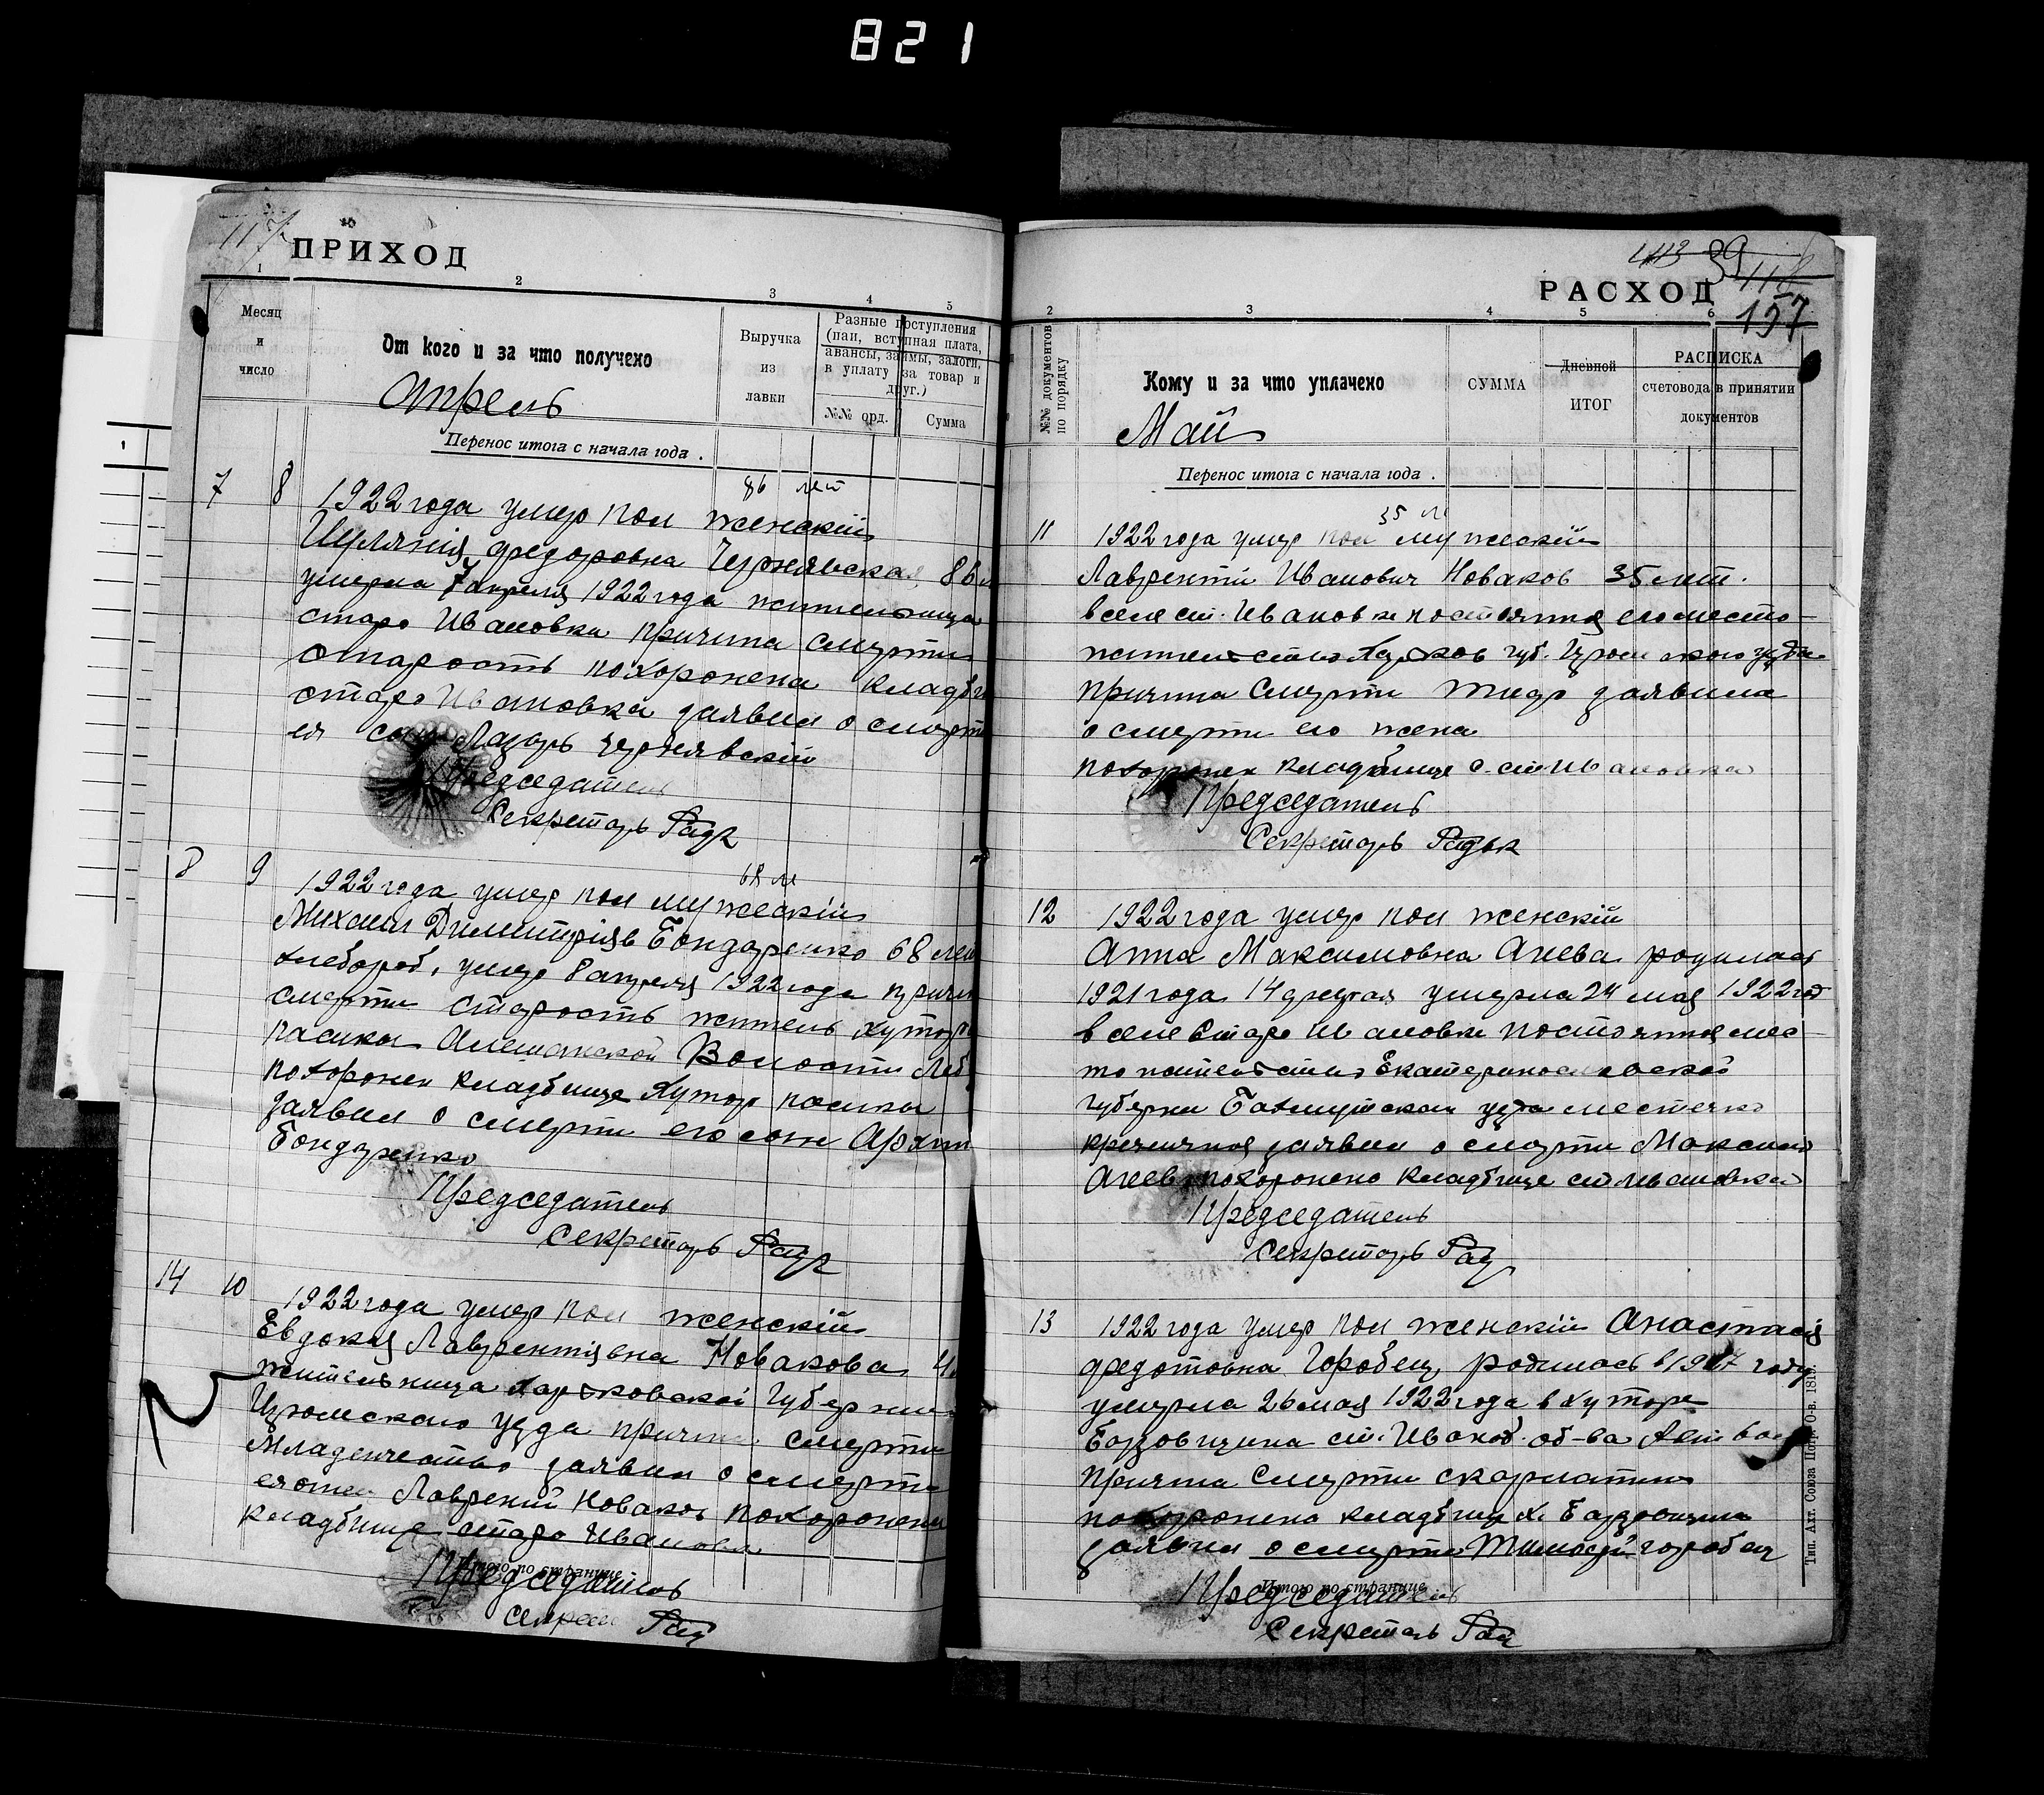 821
117
ПРИХОД
1 2 3 4 5
Месяц
и
число
От кого и за что получено
Апрель
Выручка
из
лавки
Разные поступления
(паи, вступная плата,
авансы, займы, залоги,
в уплату за товар и
друг.)
№№ орд. Сумма
Перенос итога с начала года .
86 лет
7 8 1922 года умер пол женский
федоровна Чернявская, 86
умерла 7 апреля 1922 года жительница
старо Ивановка причина смерти
старость похоронена кладби
старо Ивановка заявил о смерти
ея сын Лазарь чернявский
Председатель
Секретарь
68 ле
8 9 1922 года умер пол мужеский
Михаил Димитрiяв Бондаренко 68 лет
хлебороб, умер 8 апреля 1922 года причи
смерти старость житель хутор
пасики Волости Леб
похоронен кладбище хутор пасики
заявил о смерти его сын Архип
Бондаренко
Председатель
Секретарь
14 10 1922 года умер пол женский
Евдокия Лаврентiявна Новакова
жительница Харковской Губерни
Изюмскаго уезда причина смерти
Младенчество заявил о смерти
ея отец Лаврений Новаков похоронена
кладбище старо Иванов
Итого по странице
Председатель
Секрет
113 39
118
157
РАСХОД
2 3 4 5 6
№№ документов
по порядку
Кому и за что уплачено
Май
СУММА
Дневной
ИТОГ
РАСПИСКА
счетовода в принятии
документов
Перенос итога с начала года .
35 ле
11 1922 года умер пол мужеский
Лаврентий Иванович Новаков 35 лет.
в селе ст. Ивановке постоянная его место
жительство Харков губ. Изюмскаго уезда
причина смерти тиф заявила
о смерти его жена
похоронен кладбище с. ст Ивановка
Председатель
Секретарь
12 1922 года умер пол женский
Анна Максимовна Агева родилась
1921 года 14 умерла 24 мая 1922 год
в селе Старо Ивановки постоянная мес
то жительство Екатеринославской
губерни Бахмутскаи уезда местечко
заявил о смерти Максим
Агев похоронено кладбище ст Ивановка
Председатель
Секретарь
13 1922 года умер пол женский Анастасия
федотовна Горобец, родилась в 1917 году
умерла 26 мая 1922 года в хуторе
ст. Иванов. об-ва
причина смерти скарлатина
похоронено кладбище х.
заявил о смерти Тимофей горобец
Итого по странице
Председатель
Секретарь
Тип. Ахт. Союза Потр. О-в. 1819.